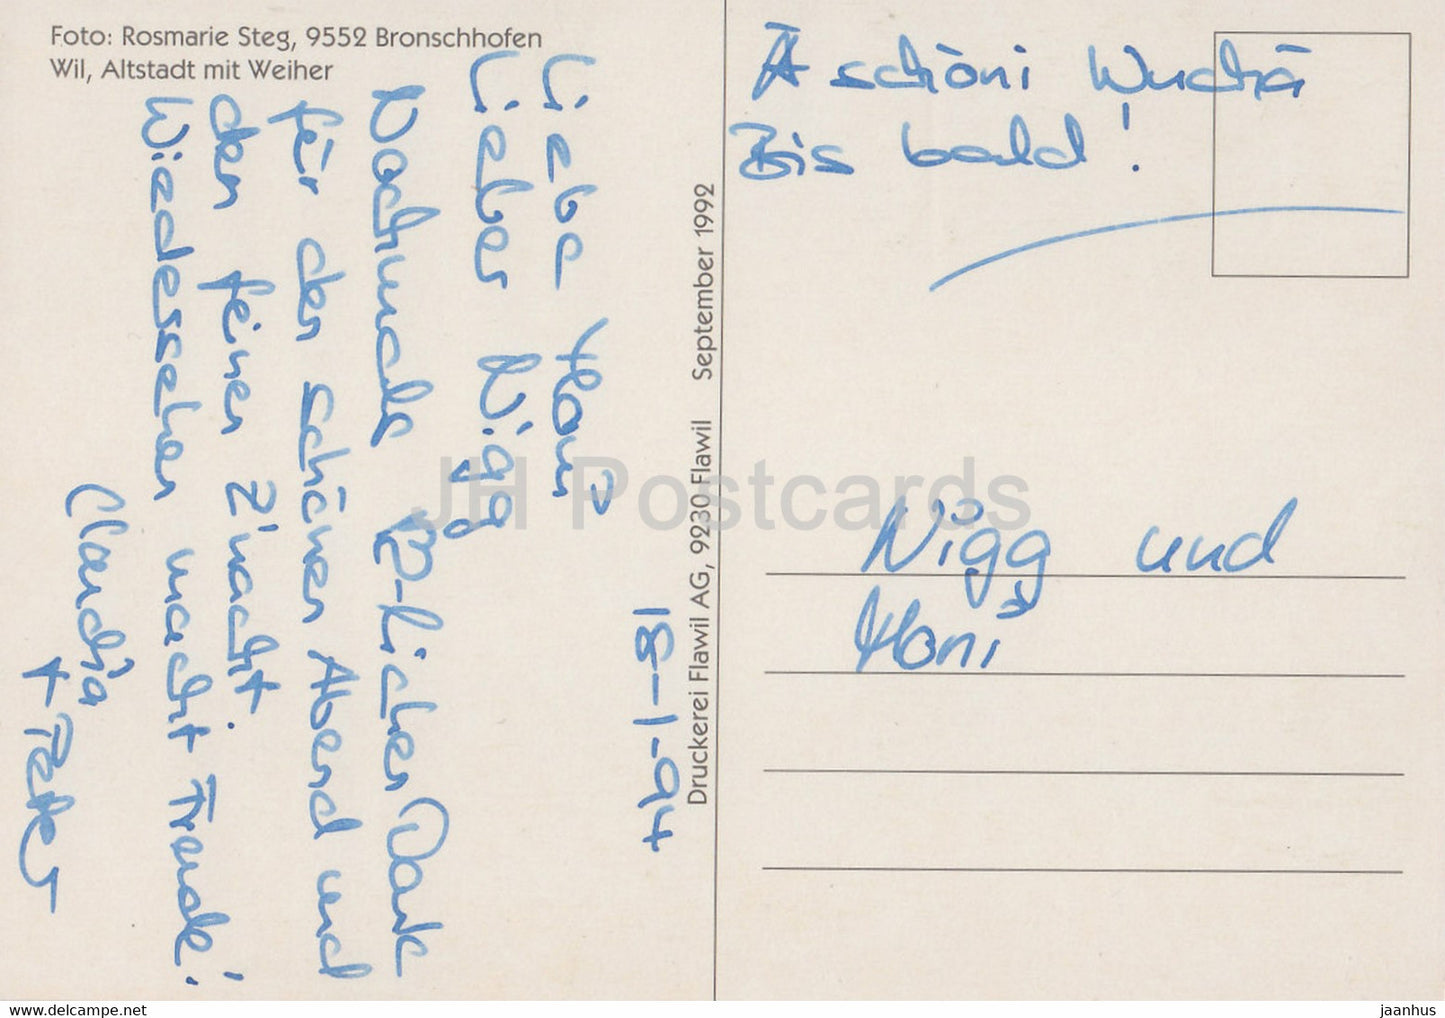 Foto: Rosmarie Steg, 9552 Bronschhofen
Wil, Altstadt mit Weiher
18-1-94
Liebe Honi
Lieber Nigg
Nochmals härzlichen Dank
für den schönen Abend und
den feinen Z'nacht.
Wiedersehen macht Freude!
Claudia
+ Peter
Druckerei Flawil AG, 9230 Flawil September 1992
Ä schöni Wuchä
Bis bald!
Nigg und
Honi
JH Postcards
www.delcampe.net
jaanhus